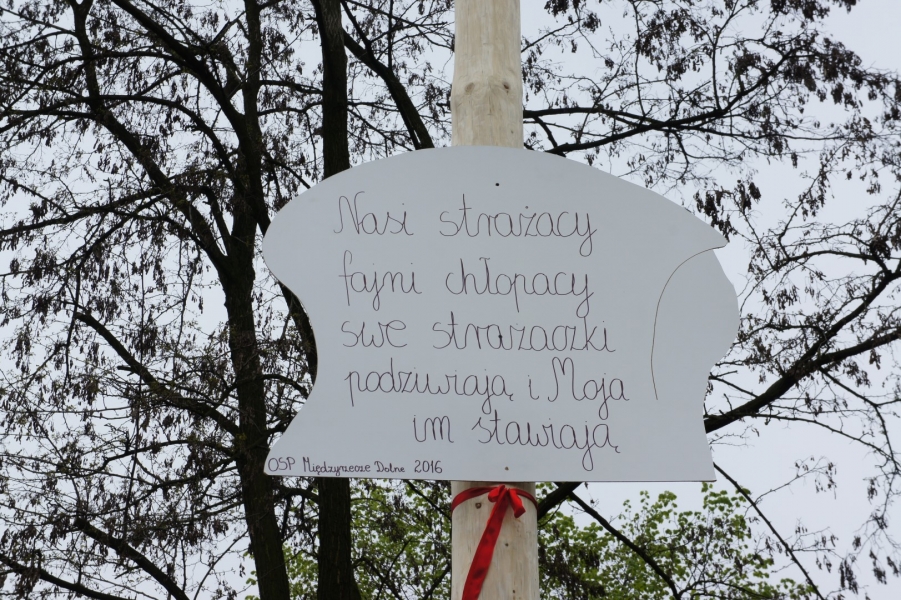 Nasi strażacy
fajni chłopacy
swe strażaczki
podziwiają i Moja
im stawiają
OSP Międzyrzecze Dolne 2016